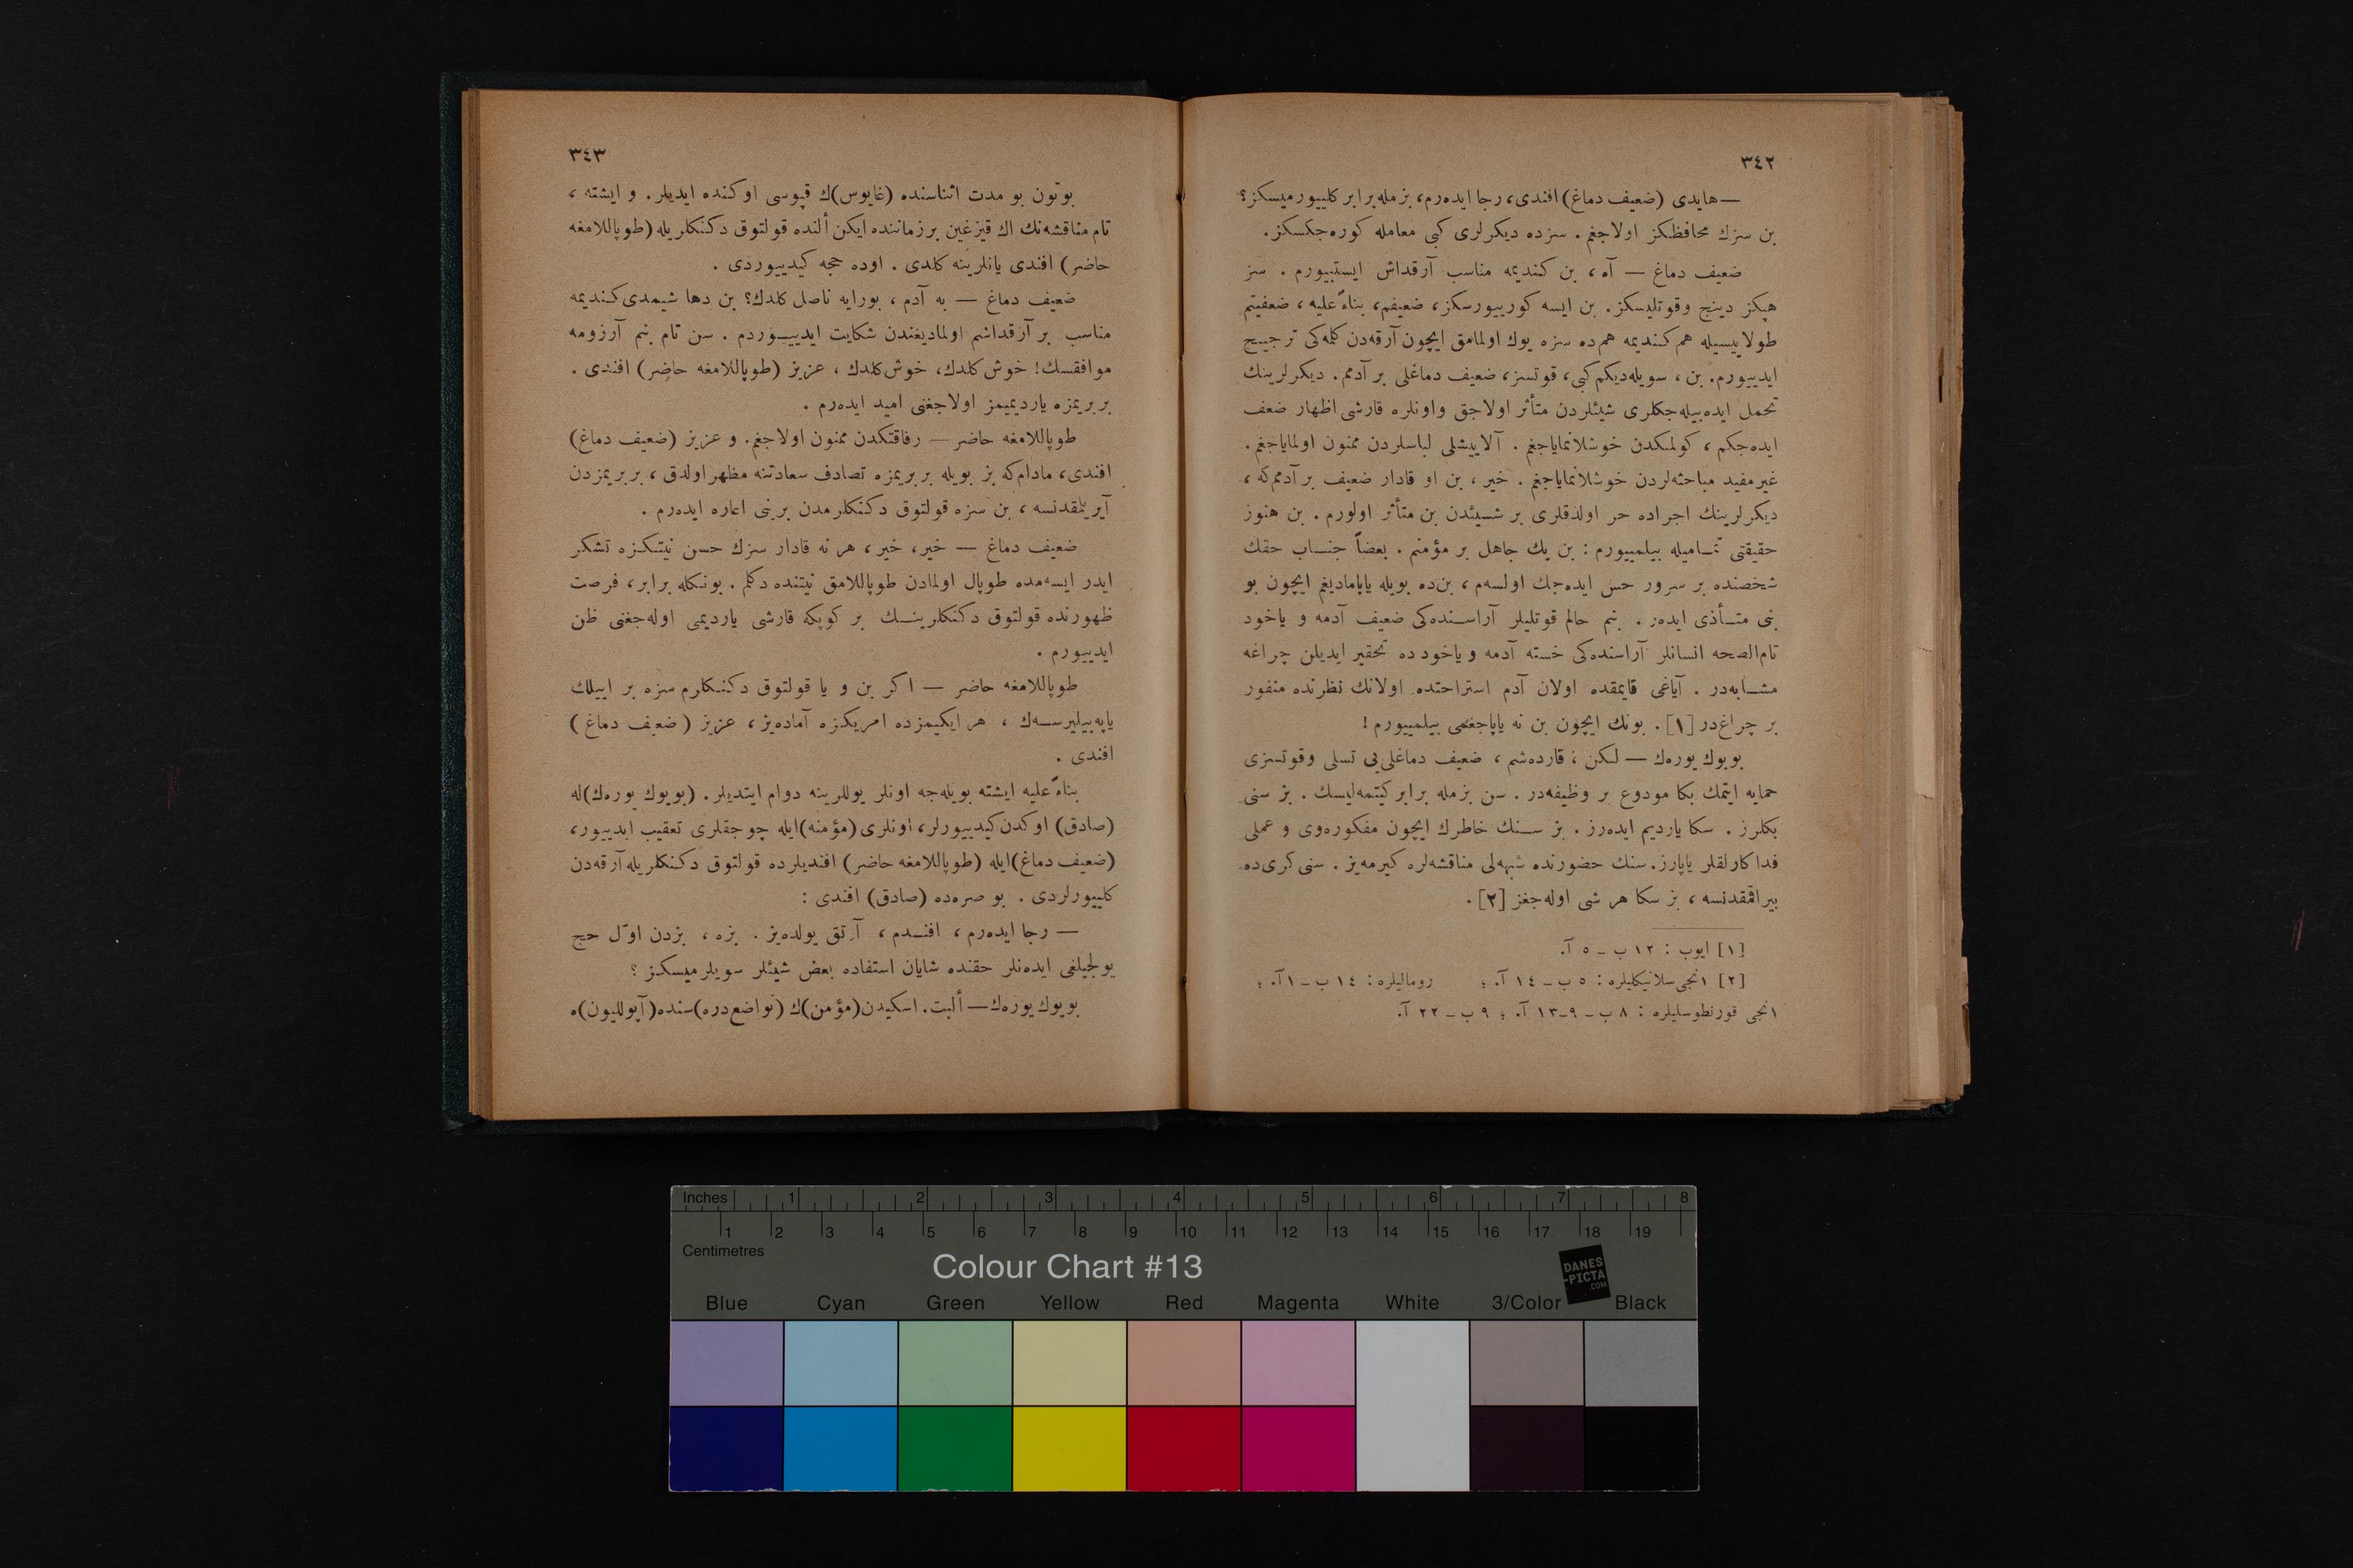 ٣٤٢
— هايدى (ضعيف دماغ) افندى، رجا ايده‌رم، بزمله برابر كلييورميسكز؟
بن سزك محافظكز اولاجغم. سزده ديكرلرى كبى معامله كوره‌جكسكز.
ضعيف دماغ — آه، بن كنديمه مناسب آرقداش ايستييورم. سز
هپكز دينج وقوتليسكز. بن ايسه كورييورسكز، ضعيفم، بناءً عليه، ضعفيتم
طولاييسيله هم كنديمه هم‌ده سزه يوك اولمامق ايچون آرقه‌دن كلمه‌كى ترجيح
ايدييورم. بن، سويله‌ديكم كبى، قوتسز، ضعيف دماغلى بر آدمم. ديكرلرينك
تحمل ايده‌بيله‌جكلرى شيئلردن متأثر اولاجق واونلره قارشى اظهار ضعف
ايده‌جكم، كولمكدن خوشلانماياجغم. آلاييشلى لباسلردن ممنون اولماياجغم.
غيرمفيد مباحثه‌لردن خوشلانماياجغم. خير، بن او قادار ضعيف بر آدممكه،
ديكرلرينك اجراده حر اولدقلرى بر شيئدن بن متأثر اولورم. بن هنوز
حقيقتى تماميله بيلمييورم: بن پك جاهل بر مؤمنم. بعضاً جناب حقك
شخصنده بر سرور حس ايده‌جك اولسه‌م، بن‌ده بويله ياپاماديغم ايچون بو
بنى متأذى ايدەر. بنم حالم قوتليلر آراسنده‌كى ضعيف آدمه و ياخود
تام‌الصحه انسانلر آراسنده‌كى خسته آدمه و ياخود ده تحقير ايديلن چراغه
مشابه‌در. آياغى قايمقده اولان آدم استراحتده اولانك نظرنده منفور
بر چراغ‌در [١]. بونك ايچون بن نه ياپاجغمى بيلمييورم!
بويوك يورەك — لكن، قارده‌شم، ضعيف دماغلى‌يى تسلى وقوتسزى
حمايه ايتمك بكا مودوع بر وظيفه‌در. سن بزمله برابر كيتمه‌ليسك. بز سنى
بكلرز. سكا يارديم ايده‌رز. بز سنك خاطرك ايچون مفكوره‌وى و عملى
فداكارلقلر ياپارز. سنك حضورنده شبهه‌لى مناقشه‌لره كيرمه‌يز. سنى كرى‌ده
بيراقمقدنسه، بز سكا هر شى اوله‌جغز [٢].
[١] ايوب : ١٢ ب ـ ٥ آ.
[٢] ١نجى سلانيكليلره : ٥ ب ـ ١٤ آ. ؛ روماليلره : ١٤ ب ـ ١ آ. ؛
١نجى قورنطوسليلره : ٨ ب ـ ٩-١٣ آ. ؛ ٩ ب ـ ٢٢ آ.
٣٤٣
بوتون بو مدت اثناسنده (غايوس)ك قپوسى اوكنده ايديلر. و ايشته،
تام مناقشه‌نك اك قيزغين بر زماننده ايكن ألنده قولتوق دكنكلريله (طوپاللامغه
حاضر) افندى يانلرينه كلدى. اوده حجه كيدييوردى.
ضعيف دماغ — به آدم، بورايه ناصل كلدك؟ بن دها شيمدى كنديمه
مناسب بر آرقداشم اولماديغندن شكايت ايدييوردم. سن تام بنم آرزومه
موافقسك! خوش كلدك، خوش كلدك، عزيز (طوپاللامغه حاضر) افندى.
بربريمزه يارديميمز اولاجغنى اميد ايده‌رم.
طوپاللامغه حاضر — رفاقتكدن ممنون اولاجغم. و عزيز (ضعيف دماغ)
افندى، مادام‌كه بز بويله بربريمزه تصادف سعادتنه مظهر اولدق، بربريمزدن
آيريلمقدنسه، بن سزه قولتوق دكنكلرمدن برينى اعاره ايده‌رم.
ضعيف دماغ — خير، خير، هر نه قادار سزك حسن نيتكزه تشكر
ايدر ايسه‌مده طوپال اولمادن طوپاللامق نيتنده دكلم. بونكله برابر، فرصت
ظهورنده قولتوق دكنكلرينك بر كوپكه قارشى يارديمى اوله‌جغنى ظن
ايدييورم.
طوپاللامغه حاضر — اكر بن و يا قولتوق دكنكلرم سزه بر اييلك
ياپه‌بيليرسه‌ك، هر ايكيمزده امريكزه آماده‌يز، عزيز (ضعيف دماغ)
افندى.
بناءً عليه ايشته بويله‌جه اونلر يوللرينه دوام ايتديلر. (بويوك يورەك)له
(صادق) اوكدن كيدييورلر، اونلرى (مؤمنه)ايله چوجقلرى تعقيب ايدييور،
(ضعيف دماغ)ايله (طوپاللامغه حاضر) افنديلرده قولتوق دكنكلريله آرقه‌دن
كلييورلردى. بو صره‌ده (صادق) افندى :
— رجا ايده‌رم، افندم، آرتق يولده‌يز. بزه، بزدن اوّل حج
يولجيلغى ايده‌نلر حقنده شايان استفاده بعض شيئلر سويلرميسكز؟
بويوك يورەك — ألبت. اسكيدن (مؤمن)ك (تواضع دره)سنده (آپولليون)ه
Inches 1 2 3 4 5 6 7 8
1 2 3 4 5 6 7 8 9 10 11 12 13 14 15 16 17 18 19
Centimetres
Colour Chart #13
DANES
-PICTA
.COM
Blue Cyan Green Yellow Red Magenta White 3/Color Black